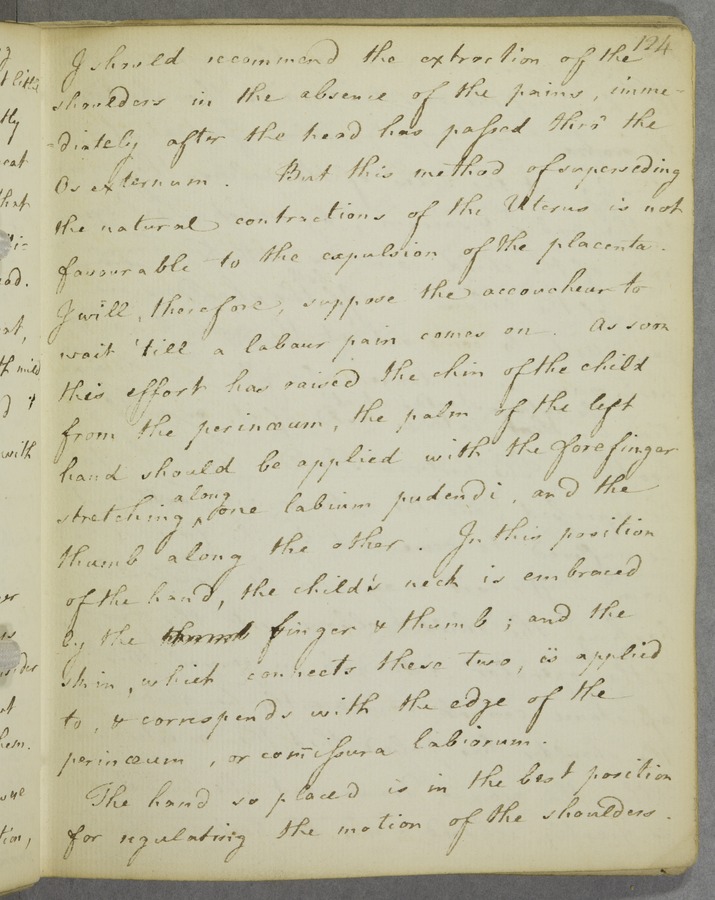 124
I should recommend the extraction of the
shoulders in the absence of the pains, imme-
-diately after the head has passed thro' the
Os externum. But this method of superseding
the natural contractions of the Uterus is not
favourable to the expulsion of the placenta.
I will, therefore, suppose the accoucheur to
wait 'till a labour pain comes on. As soon
this effort has raised the chin of the child
from the perinæum, the palm of the left
hand should be applied with the forefinger
along
stretching ^ one labium pudendi, and the
thumb along the other. In this position
of the hand, the child's neck is embraced
by the thumb finger & thumb; and the
skin, which connects these two, is applied
to, & corresponds with the edge of the
perinæum, or com̅issura labiorum.
The hand so placed is in the best position
for regulating the motion of the shoulders.